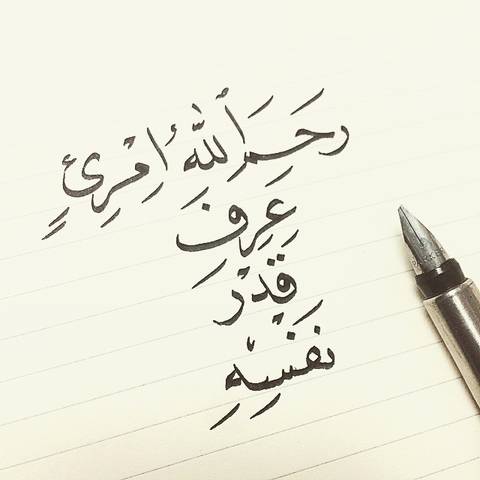 رَحِمَ ٱللهُ امْرِئٍ
عَرِفَ
قِدْرَ
نَفْسِهِ